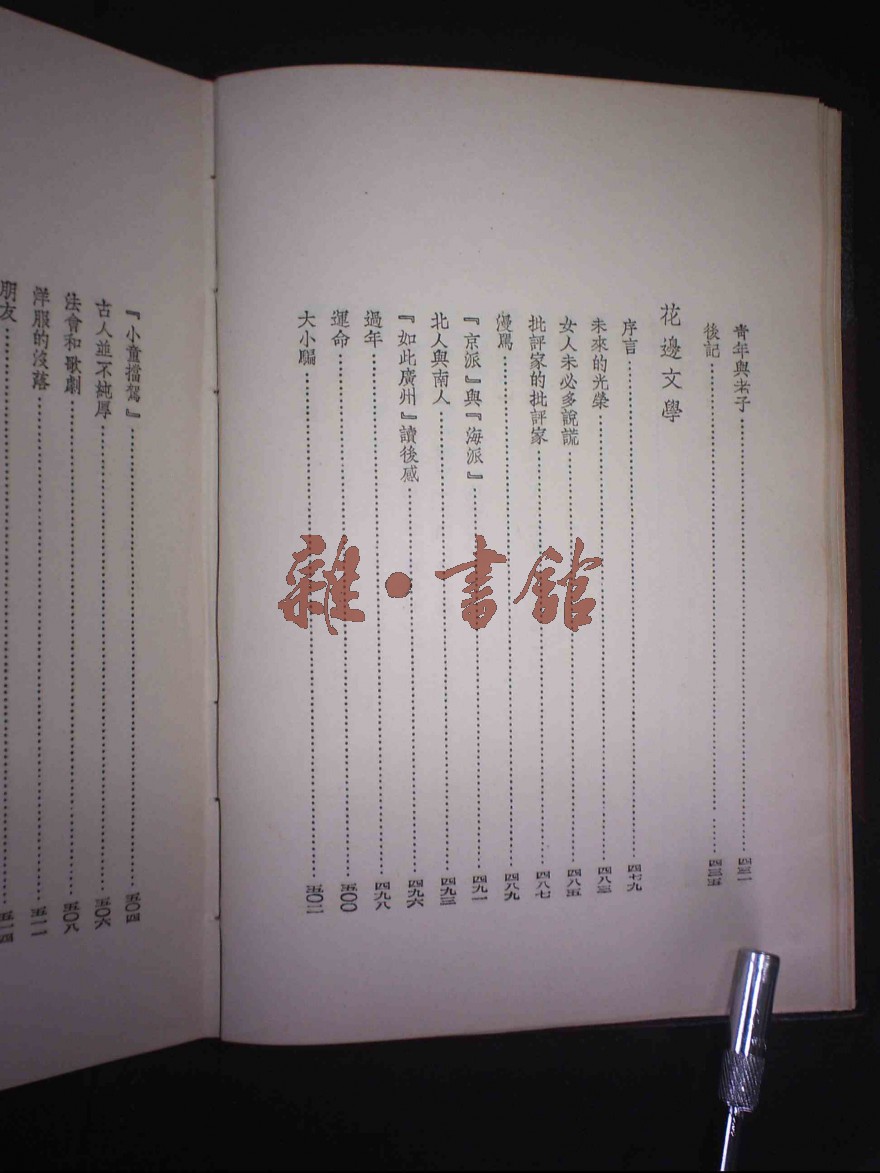 青年與老子……四三一
後記……四三五
花邊文學
序言……四七九
未來的光榮……四八三
女人未必多說謊……四八五
批評家的批評家……四八七
漫罵……四八九
『京派』與『海派』……四九一
北人與南人……四九三
『如此廣州』讀後感……四九六
過年……四九八
運命……五〇〇
大小騙……五〇二
『小童擋駕』……五〇四
古人並不純厚……五〇六
法會和歌劇……五〇八
洋服的沒落……五一一
朋友……五一四
雜·書館